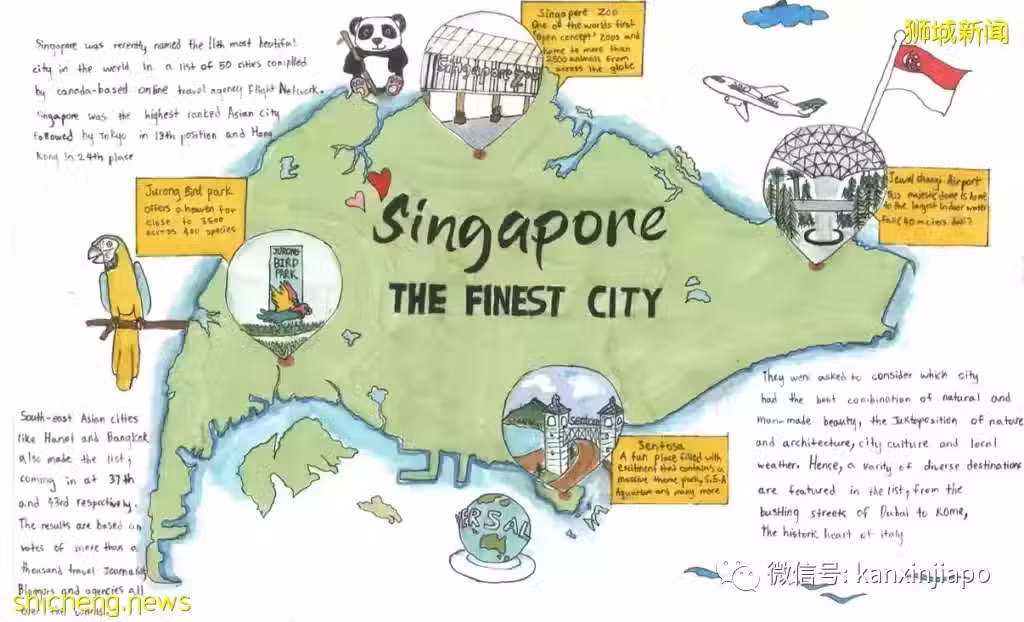 狮城新闻
Singapore was recently named the 11th most beutiful
city in the world in a list of 50 cities compiled
by canada-based online travel agency Flight Network.
Singapore was the highest ranked Asian city
followed by Tokyo in 13th position and Hong
Kong in 24th place
Singapore Zoo
One of the worlds first
'open concept' zoos and
home to more than
2500 animals from
across the globe
Singapore
Jurong Bird park
offers a heaven for
close to 3500
across 400 species
JURONG
BIRD
PARK
Jewel changi Airport
this majestic dome is home
to the largest indoor water
fall (40 meters tall)
Singapore
THE FINEST CITY
Sentosa
Sentosa
A fun place filled with
excitment that contains a
massive theme park, S.E.A
Aquarium and many more
ERSAL
South-east Asian cities
like Hanoi and Bangkok
also made the list,
coming in at 37th
and 43rd respectively.
The results are based on
votes of more than a
thousand travel journalist
Bloggers and agencies all
over the
They were asked to consider which city
had the best combination of natural and
man-made beauty, the juxtoposition of nature
and architecture, city culture and local
weather. Hence, a varity of diverse destinations
are featured in the list, from the
bustling streets of Dubai to Rome,
the historic heart of italy
微信号: kanxinjiapo
shicheng.news